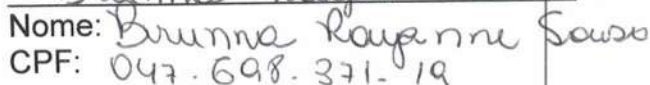 Nome: Brunna Rayanne Souso
CPF: 047.698.371-19